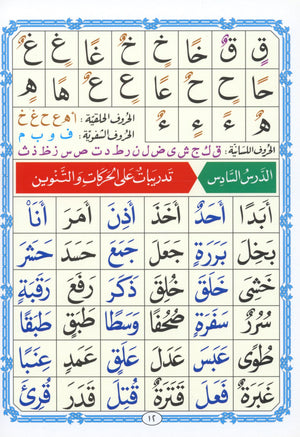 قٍ قٌ خًا خٍ خٌ غًا غٍ غٌ
حًا حٍ حٌ عًا عٍ عٌ هًا هٍ
هٌ ءً ءٍ ءٌ
الحُرُوفُ الحَلْقِيَّة : أ هـ ع ح غ خ
الحُرُوفُ الشَّفَوِيَّة : ف و ب م
الحُرُوف اللِّسَانِيَّة: ق ك ج ش ي ض ل ن ر ط د ت ص س ز ظ ذ ث
الدَّرْسُ السَّادِسُ تَدْرِيبَاتٌ عَلَى الحَرَكَاتِ وَالتَّنْوِين
أَبَدًا أَحَدٌ أَخَذَ أَذِنَ أَمَرَ أَنَا۠
بَخِلَ بَرَرَةٍ جَعَلَ جَمَعَ حَسَدَ حَشَرَ
خَشِيَ خَلَقَ خُلِقَ ذَكَرَ رَفَعَ رَقَبَةٍ
سُرُرٌ سَفَرَةٍ صُحُفًا وَسَطًا طَبَقٍ طَبَقًا
طُوًى عَبَسَ عَدَلَ عَلَقٍ عَمَدٍ عِنَبًا
غَبَرَةٌ فَعَلَ قَتَرَةٌ قُتِلَ قَدَرَ قُرِئَ
١٢